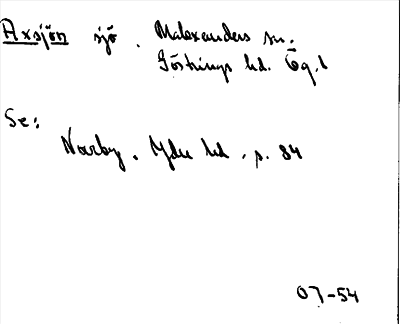 Axsjön sjö. Malexanders sn.
Göstrings hd. Ög.l
Se:
Norrby, Ydre hd. p. 84
07-54